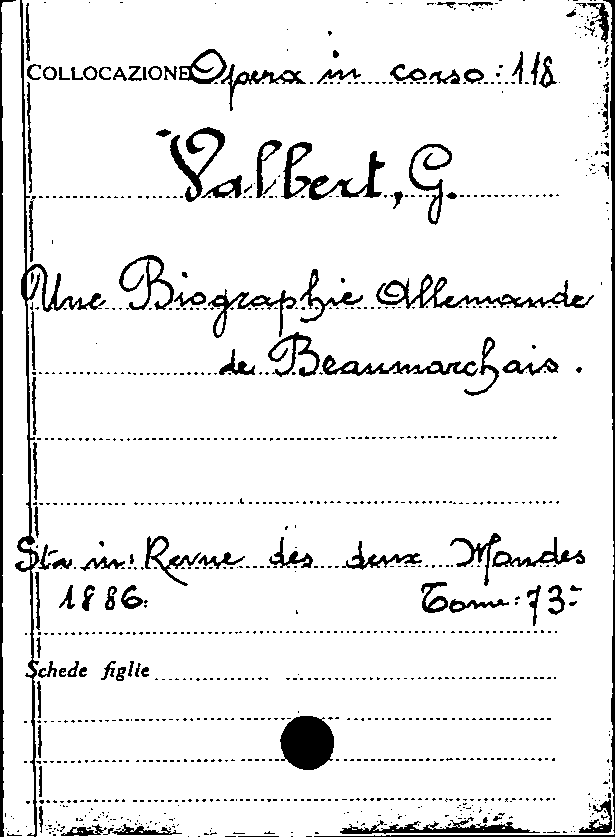 COLLOCAZIONE Opera in corso: 118
Valbert, G.
Une Biographie Allemande
de Beaumarchais.
Sta in: Revue des deux Mondes
1886. Tome: 73-
Schede figlie